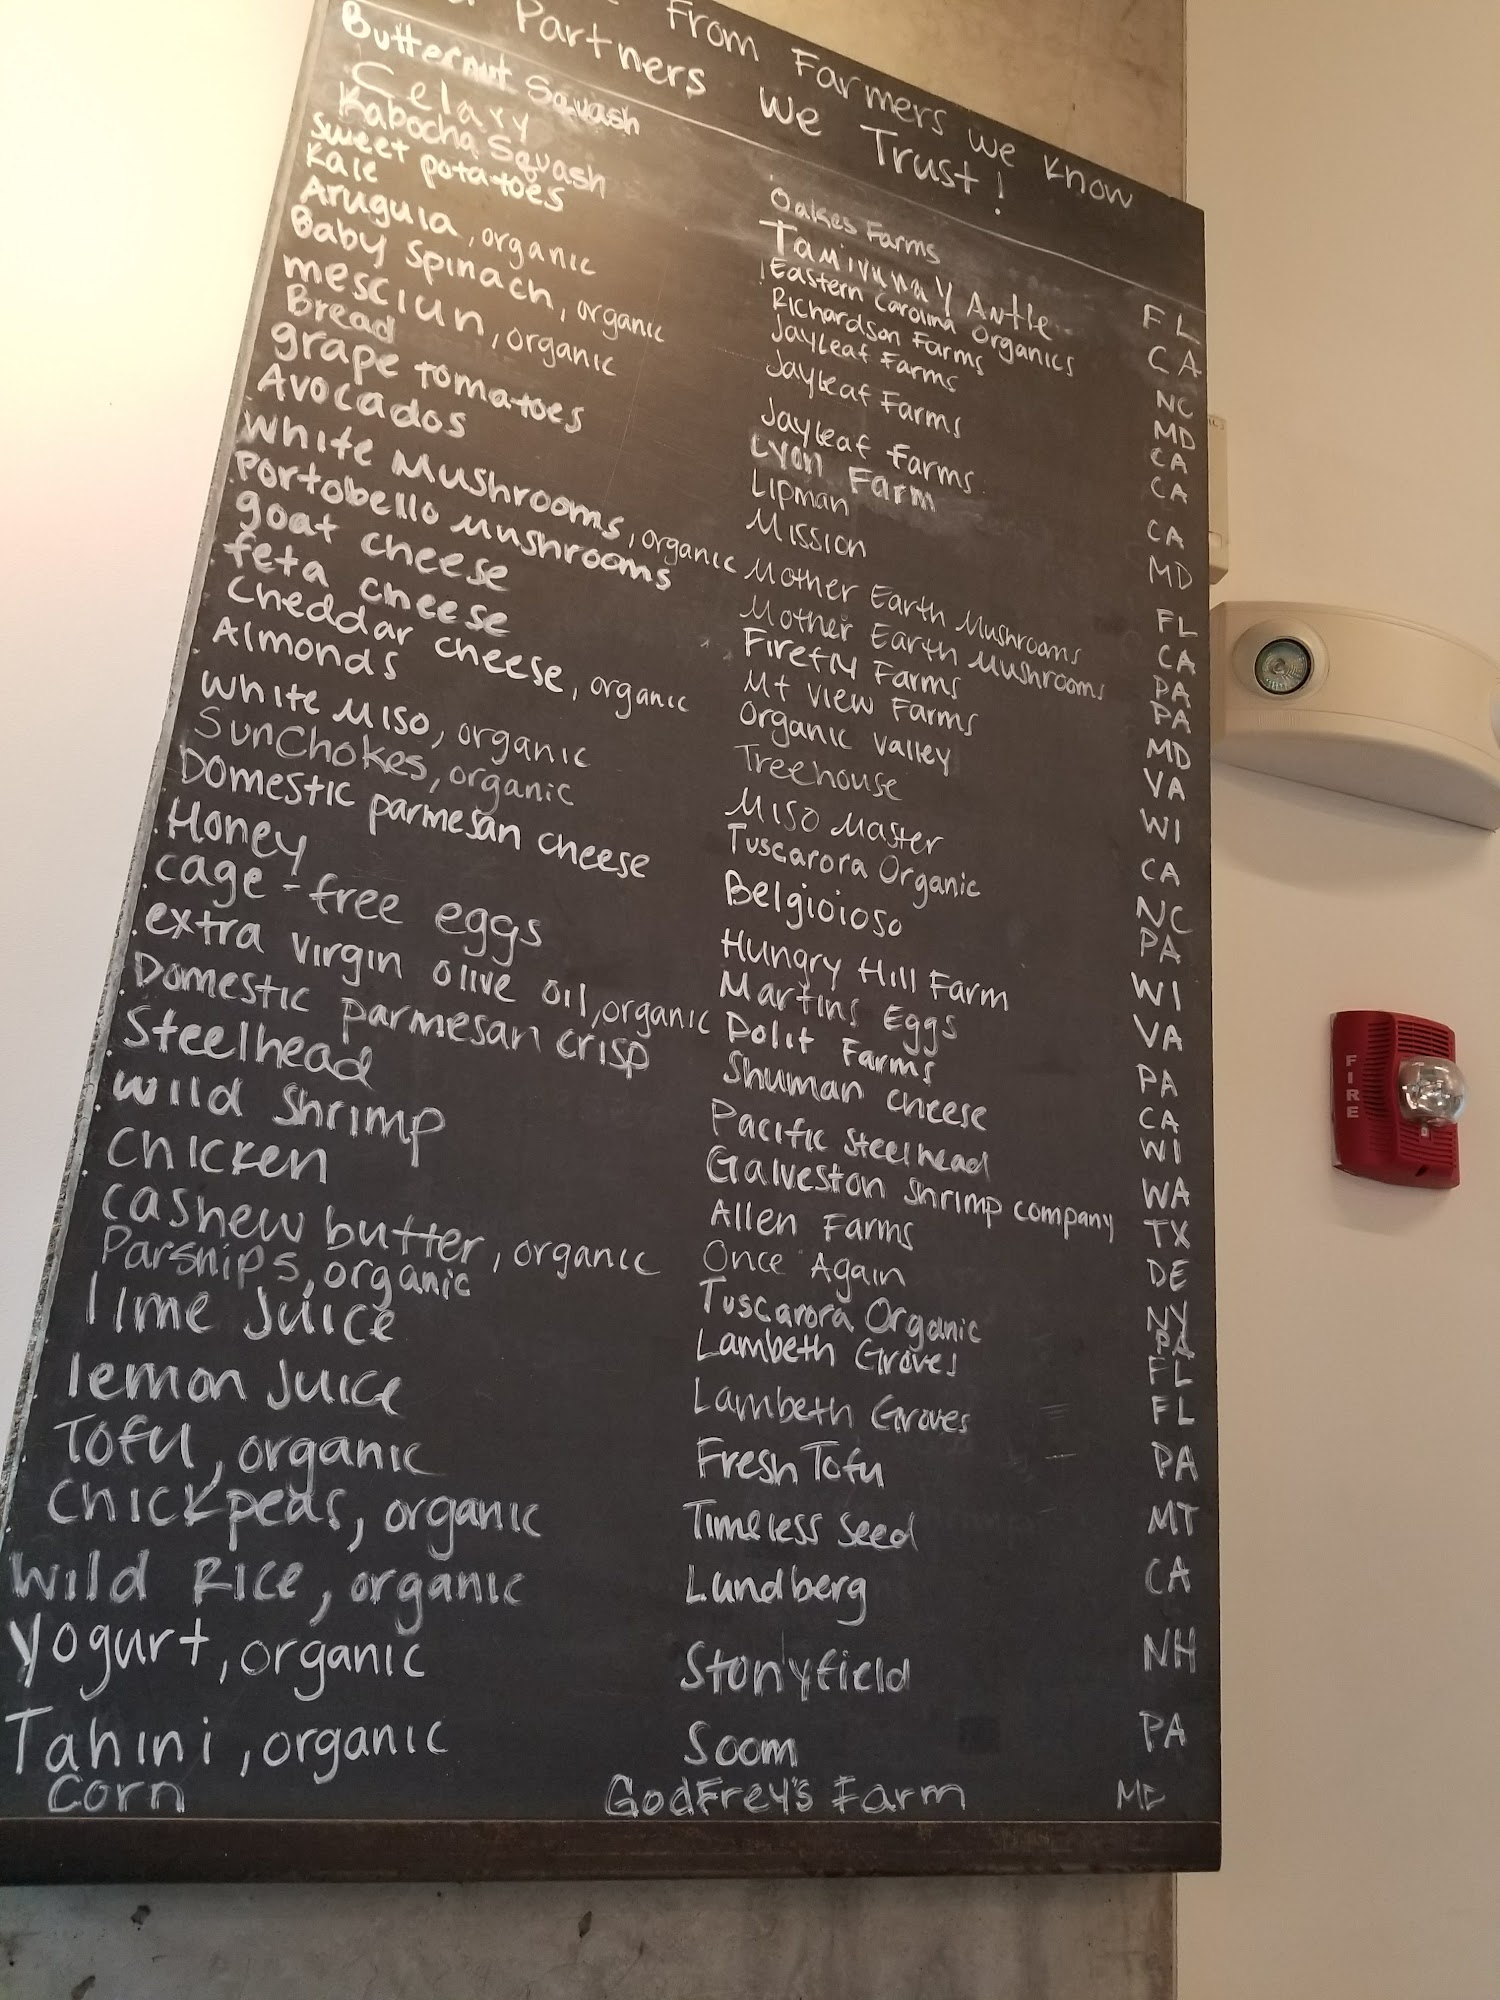 From Farmers we know
Partners we Trust!
Butternut Squash Oakes Farms FL
Celary Antle CA
Kabocha Squash
sweet potatoes Eastern Carolina Organics NC
Kale Richardson Farms MD
Arugula, organic Jayleaf Farms CA
Baby Spinach, organic Jayleaf Farms CA
mesclun, organic Jayleaf Farms CA
Bread Lyon Farm MD
grape tomatoes Lipman FL
Avocados Mission CA
White Mushrooms, organic Mother Earth Mushrooms PA
Portobello Mushrooms Mother Earth Mushrooms PA
goat cheese Firefly Farms MD
feta cheese Mt View Farms VA
Cheddar cheese, organic Organic Valley WI
Almonds Treehouse CA
White Miso, organic Miso Master NC
SunChokes, organic Tuscarora Organic PA
Domestic parmesan cheese Belgioioso WI
Honey Hungry Hill Farm VA
cage-free eggs Martins Eggs PA
extra virgin olive oil, organic Polit Farms CA
Domestic parmesan crisp Shuman cheese WI
Steelhead Pacific Steelhead WA
Wild Shrimp Galveston Shrimp company TX
Chicken Allen Farms DE
cashew butter, organic Once Again NY
Parsnips, organic Tuscarora Organic PA
lime Juice Lambeth Groves FL
lemon Juice Lambeth Groves FL
Tofu, organic Fresh Tofu PA
Chickpeas, organic Timeless Seed MT
Wild Rice, organic Lundberg CA
Yogurt, organic Stonyfield NH
Tahini, organic Soom PA
Corn GodFrey's Farm MD
FIRE